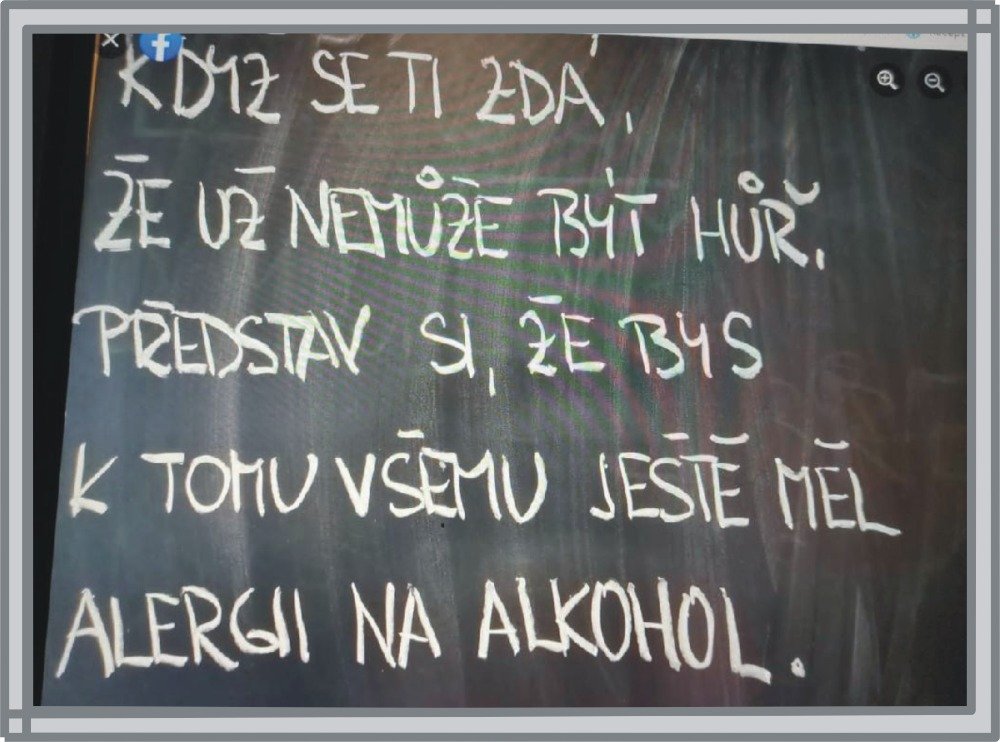 KDYŽ SE TI ZDÁ,
ŽE UŽ NEMŮŽE BÝT HŮŘ.
PŘEDSTAV SI, ŽE BYS
K TOMU VŠEMU JEŠTĚ MĚL
ALERGII NA ALKOHOL.